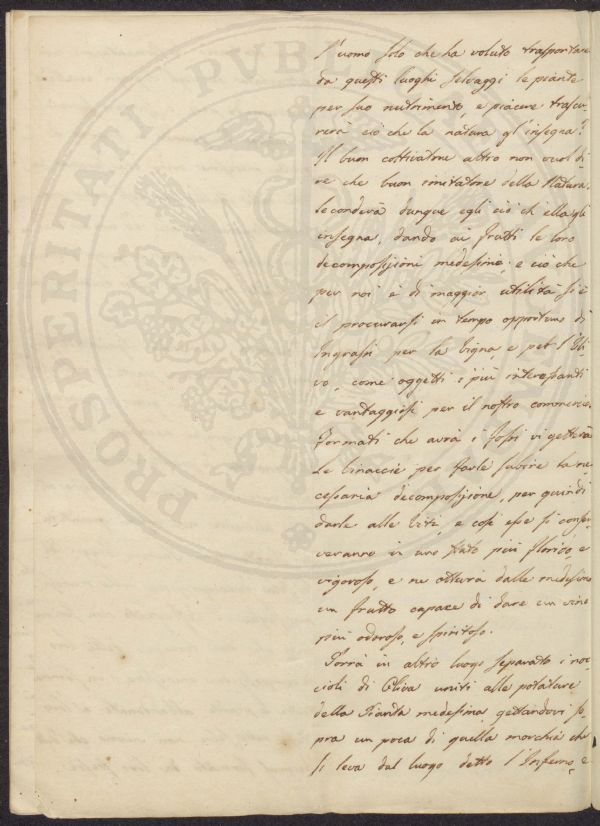 PROSPERITATI PUBLI
l'uomo solo che ha voluto trasportare
da questi luoghi selvaggi le piante
per suo nutrimento, e piacere trascu-
rerà ciò che la natura gl'insegna?
Il buon coltivatore altro non vuol di-
re che buon imitatore della Natura.
Seconderà dunque egli ciò ch'ella gli
insegna, dando ai frutti le loro
decomposizioni medesime; e ciò che
per noi è di maggior utilità si è
il procurarsi in tempo opportuno di
Ingrassi per la Vigna, e pet l'Uli-
vo, come oggetti i più interessanti
e vantaggiosi per il nostro commercio.
Formati che avrà i fossi vi getterà
Le Vinaccie per farle subire la ne-
cessaria decomposizione, per quindi
darle alle Viti, e così esse si conser-
veranno in uno stato più florido, e
vigoroso, e ne otterrà dalle medesime
un frutto capace di dare un vino
più odoroso, e spiritoso.
Porrà in altro luogo separato i noc-
cioli di Oliva uniti alle potature
della Pianta medesima, gettandovi so-
pra un poca di quella morchia che
si leva dal luogo detto l'Inferno, e